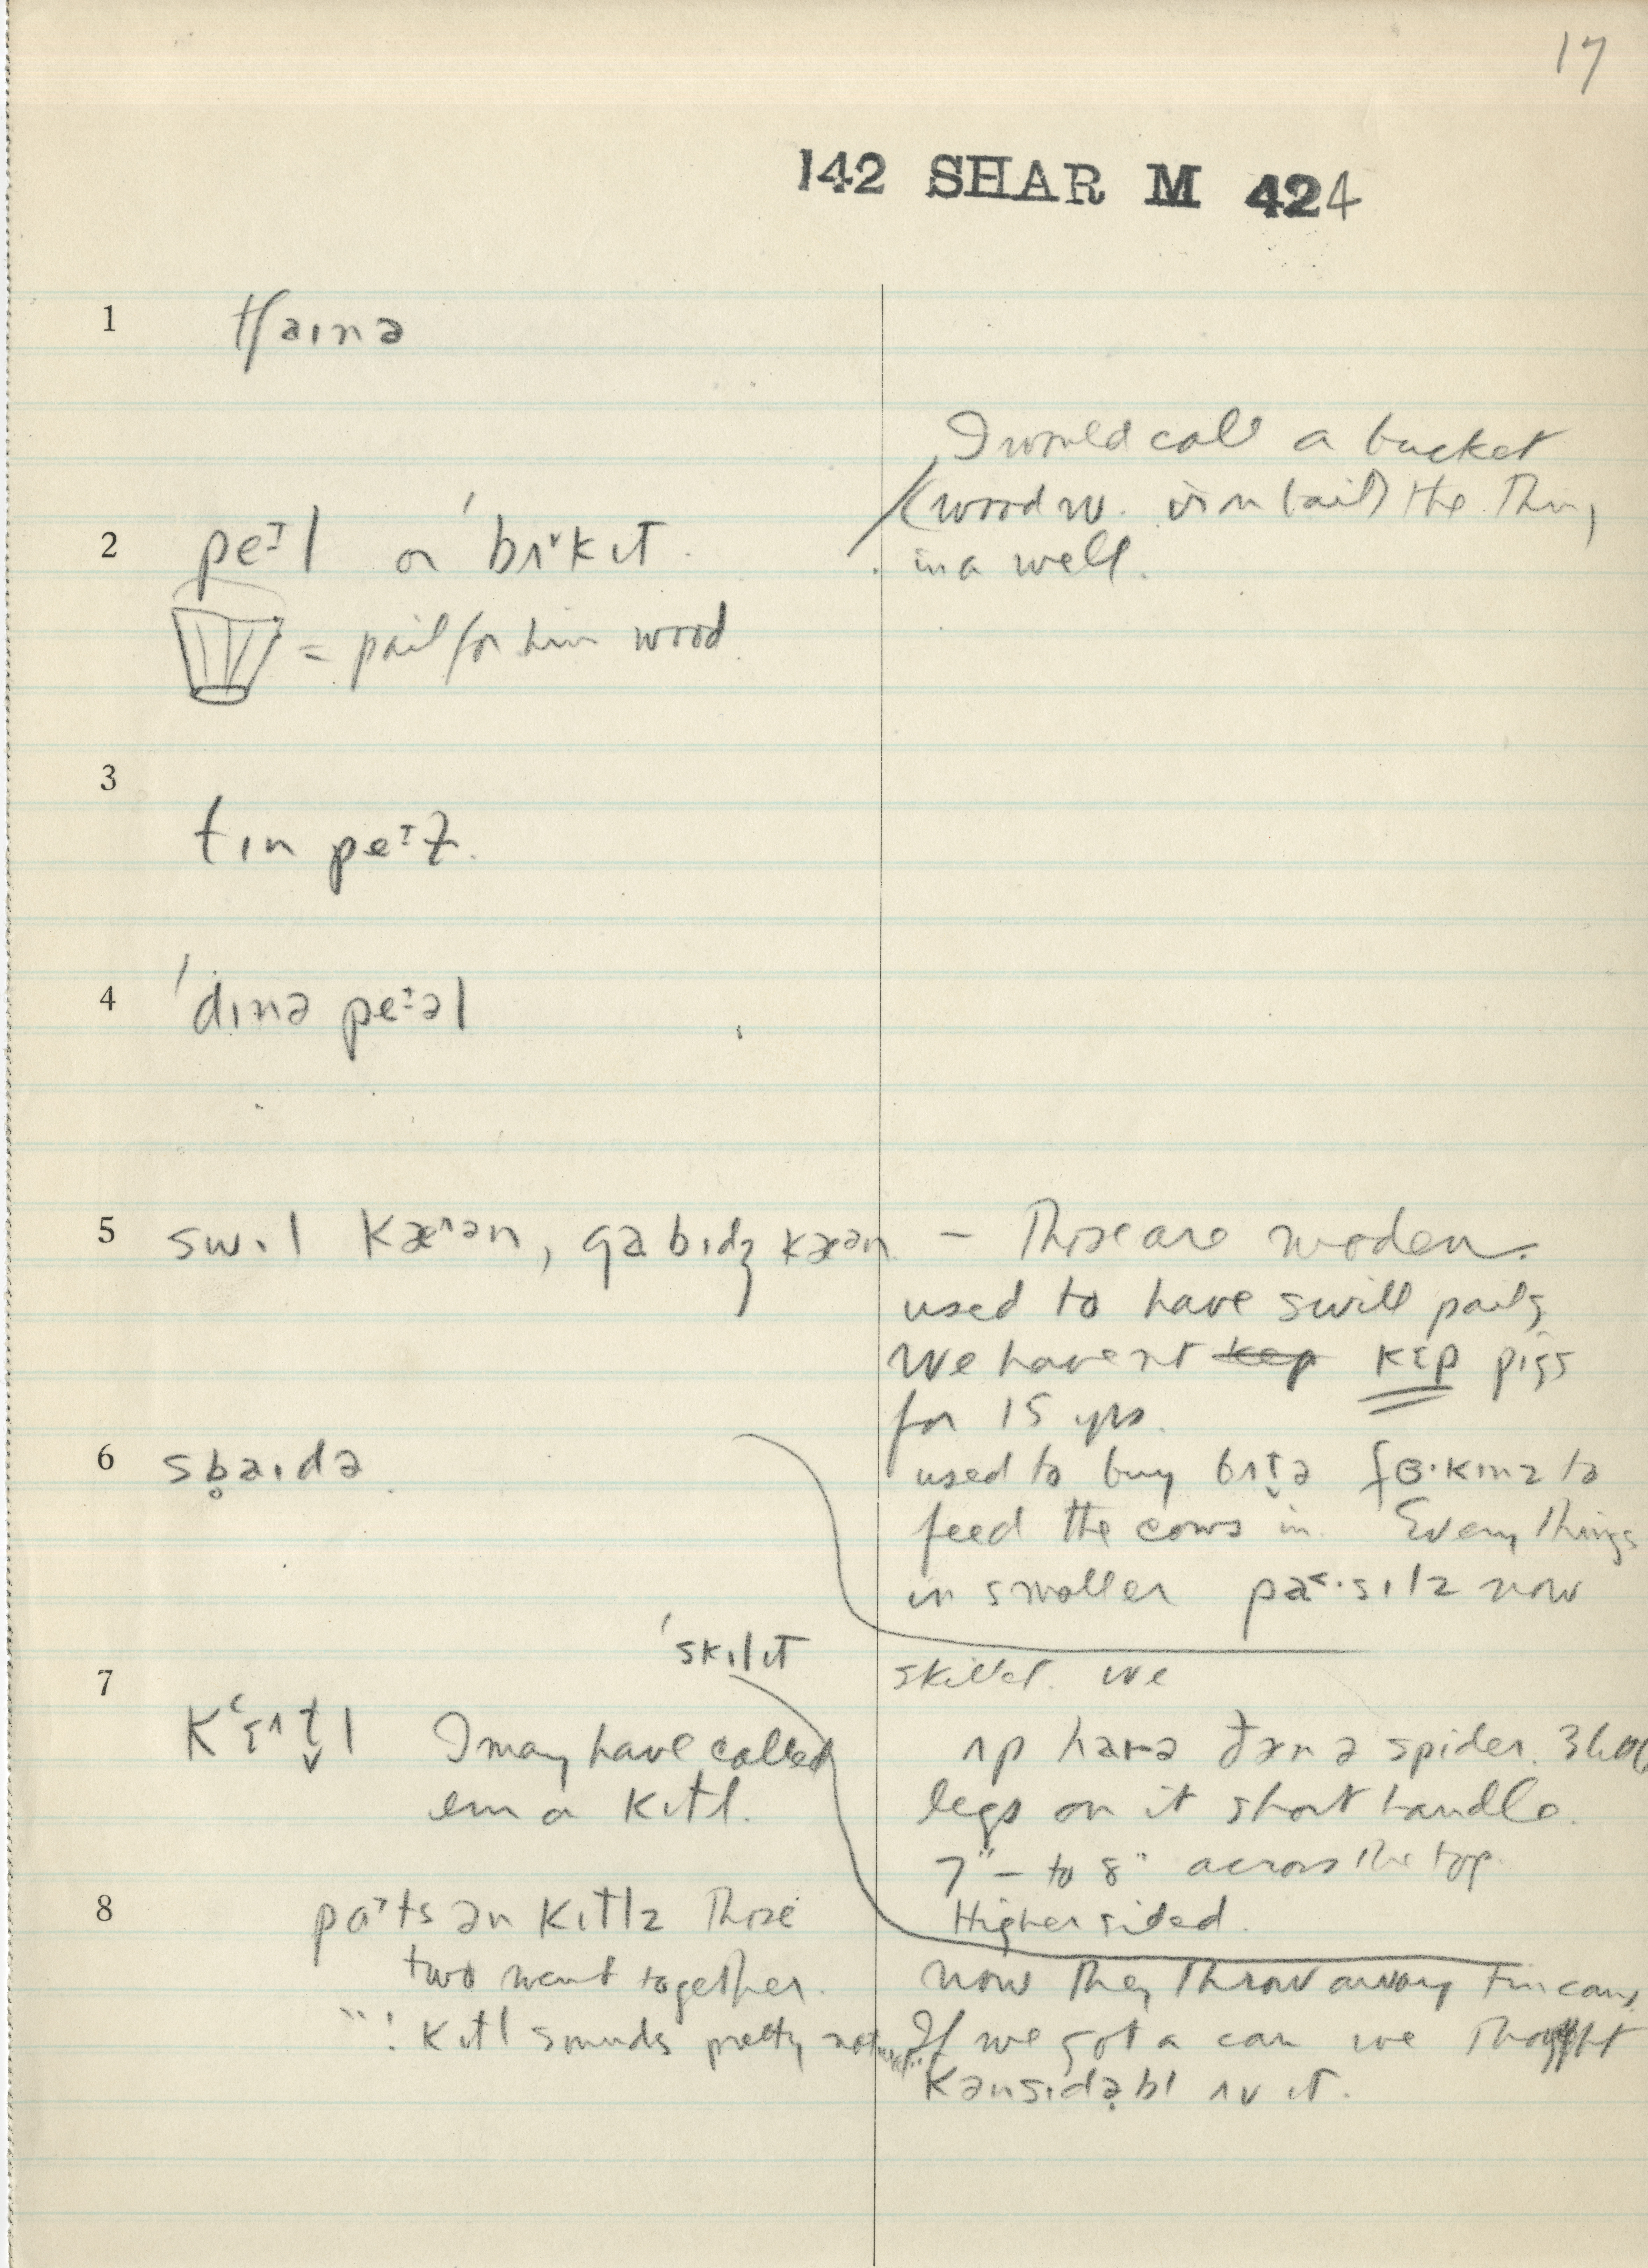 17
142 SHAR M 424
1 tʃaɪnə
I would call a bucket
(wood w. iron bail) the thing
in a well.
2 peɪl or 'bʌkɪt.
= pail for him wood
3
tɪn peɪɫ.
4 'dɪnə peɪəl
5 swɪl kæən, gabɪdʒ kæən — These are wooden.
used to have swill pails
We havent kep kɛp pigs
for 15 yrs.
6 sb̥aɪdə.
used to buy bʌt̬ə fɜ·kɪnz to
feed the cows in. Everythings
in smaller pa·sɪlz now
'skɪlɪt
7
skillet. we
K'ɛʌt̬l I may have called
em a kɪtl.
ʌp haɪə ðæn a spider. 3
legs on it short handle.
7" – to 8" across the top.
Higher sided.
8 pɑts ən kɪtlz Those
two went together.
kɪtl sounds pretty
now they throw away tin cans.
If we got a can we thought
kənsɪdəbl ʌv ɪt.